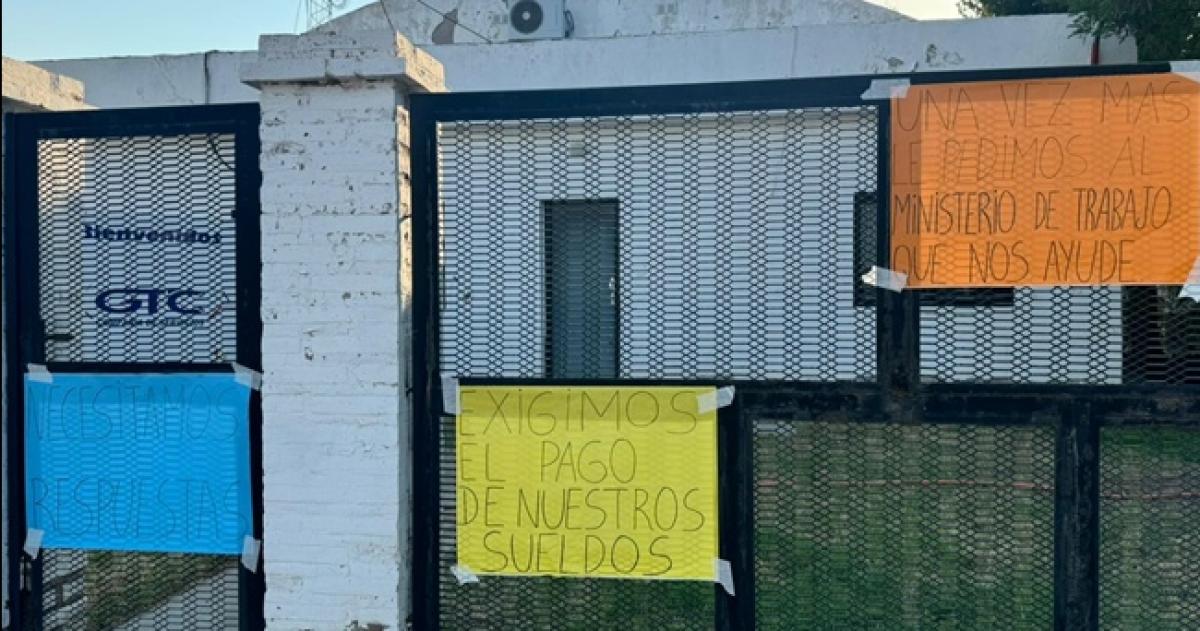 Bienvenidos
GTC
NECESITAMOS
RESPUESTAS
EXIGIMOS
EL PAGO
DE NUESTROS
SUELDOS
UNA VEZ MAS
LE PEDIMOS AL
MINISTERIO DE TRABAJO
QUE NOS AYUDE